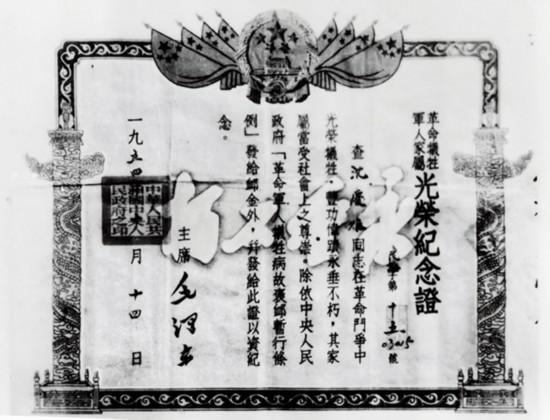 革命犧牲
軍人家屬
光榮紀念證
字第十五 號
查沈 同志在革命鬥爭中
光榮犧牲，豐功偉蹟永垂不朽，其家
屬當受社會上之尊崇。除依中央人民
政府「革命軍人犧牲病故褒卹暫行條
例」發給卹金外，并發給此證以資紀
念。
主席 毛澤東
一九五四 月十四日
中華人民共
和國中央人
民政府之印